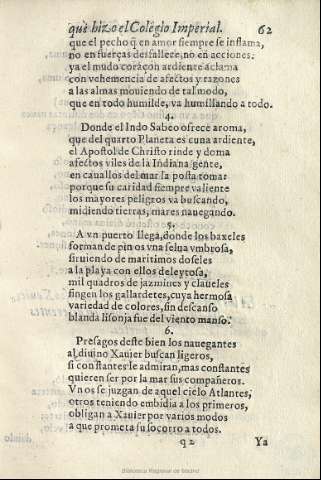 què hizo el Colegio Imperial. 62
que el pecho q̃ en amor siempre se inflama,
no en fuerças desfallece, no en acciones.
ya el mudo coraçon ardiente aclama
con vehemencia de afectos y razones
a las almas mouiendo de tal modo,
que en todo humilde, va humillando a todo.
4.
Donde el Indo Sabeo ofrece aroma,
que del quarto Planeta es cuna ardiente,
el Apostol de Christo rinde y doma
afectos viles de la Indiana gente,
en cauallos del mar la posta tomar
porque su caridad siempre valiente
los mayores peligros va buscando,
midiendo tierras, mares nauegando.
5.
A vn puerto llega, donde los baxeles
forman de pinos vna selua vmbrosa,
siruiendo de maritimos doseles
a la playa con ellos deleytosa,
mil quadros de jazmines y claueles
fingen los gallardetes, cuya hermosa
variedad de colores, sin descanso
blanda lisonja fue del viento manso.
6.
Presagos deste bien los nauegantes
al diuino Xauier buscan ligeros,
si constantes le admiran, mas constantes
quieren ser por la mar sus compañeros.
Vnos se juzgan de aquel cielo Atlantes,
otros teniendo embidia a los primeros,
obligan a Xauier por varios modos
a que prometa su socorro a todos.
q2 Ya
Biblioteca Regional de Madrid